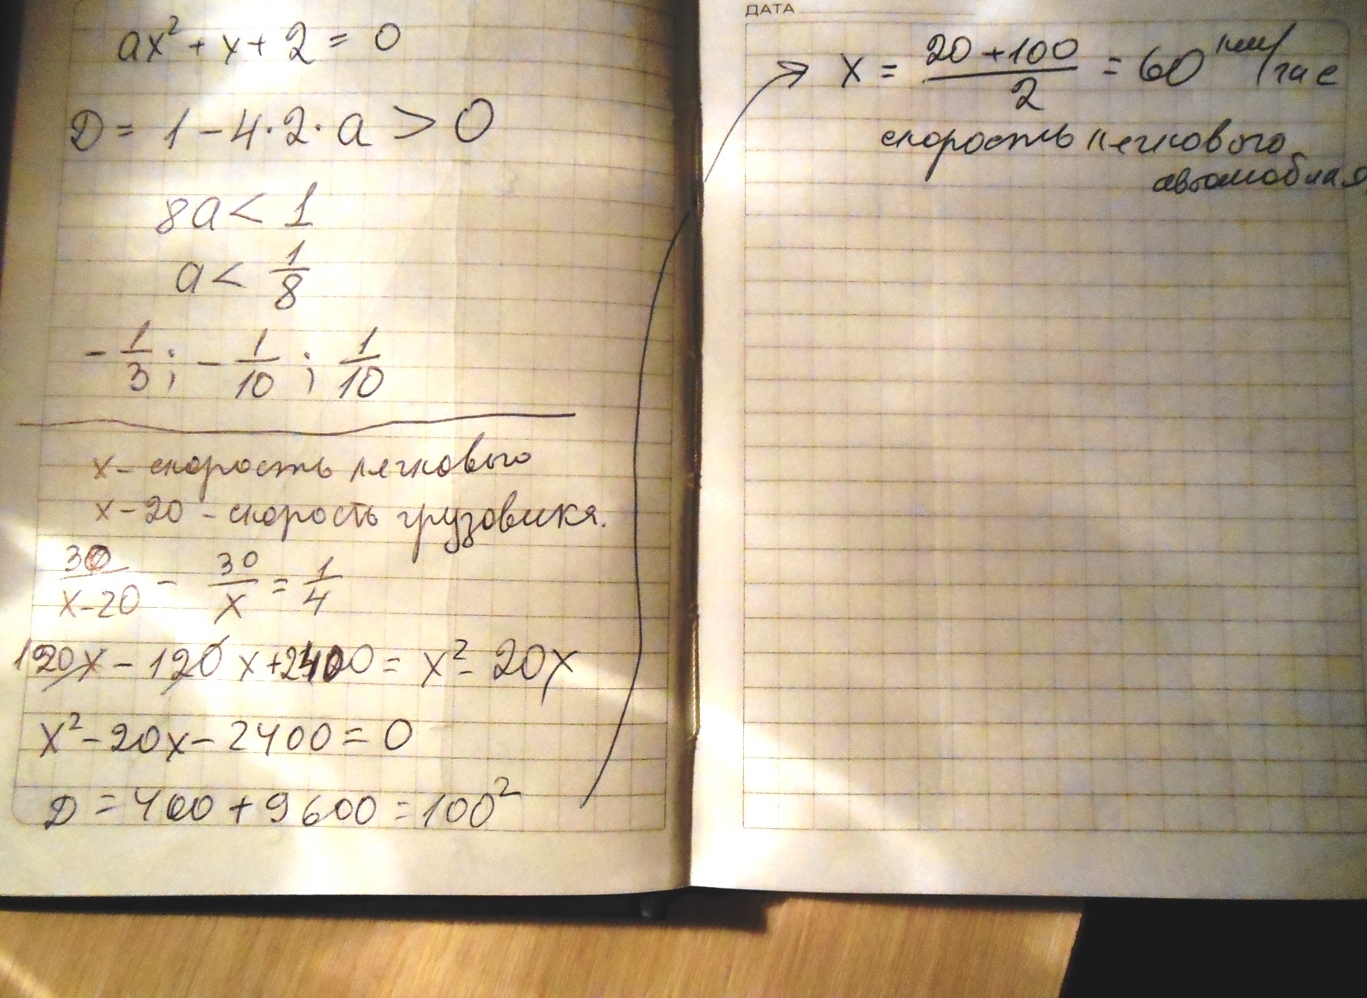 ax² + x + 2 = 0
D = 1 - 4·2·a > 0
8a < 1
a < 1/8
- 1/3 ; - 1/10 ; 1/10
x - скорость легкового
x - 20 - скорость грузовика.
30/(x-20) - 30/x = 1/4
120x - 120x + 2400 = x² - 20x
x² - 20x - 2400 = 0
D = 400 + 9600 = 100²
ДАТА
x = (20 + 100)/2 = 60 км/час
скорость легкового
автомобиля